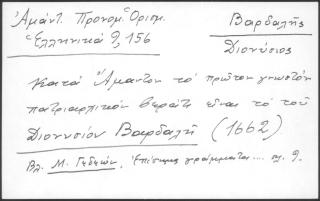 Ἀμάντ. Προνομ. Ὁρισμ.
Ἑλληνικά 9, 156
Βαρδαλῆς
Διονύσιος
Κατά Ἄμαντον τό πρῶτον γνωστόν
πατριαρχικόν βεράτι εἶναι τό τοῦ
Διονυσίου Βαρδαλῆ (1662)
Βλ. Μ. Γεδεών, Ἐπίσημα γράμματα... σελ. 9.